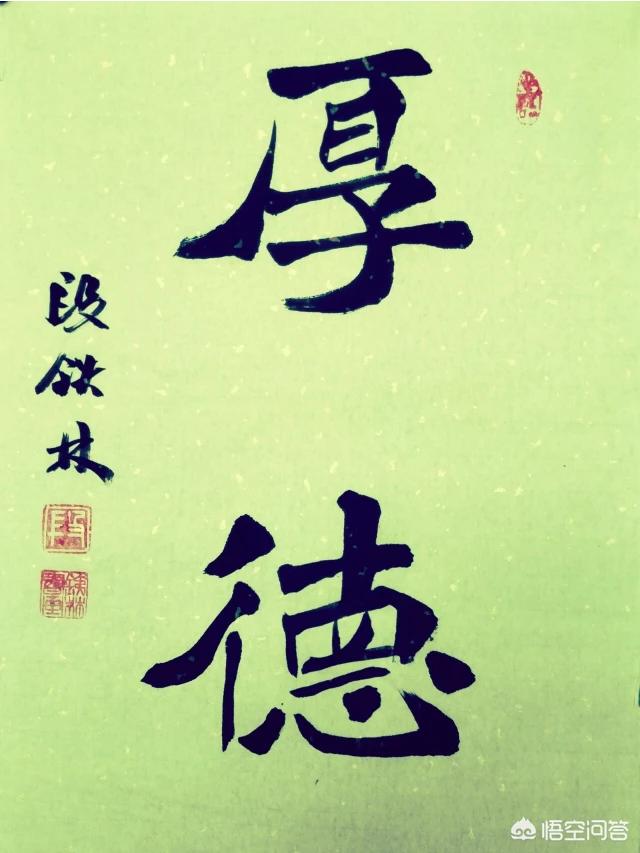 厚德
段铁林
悟空问答